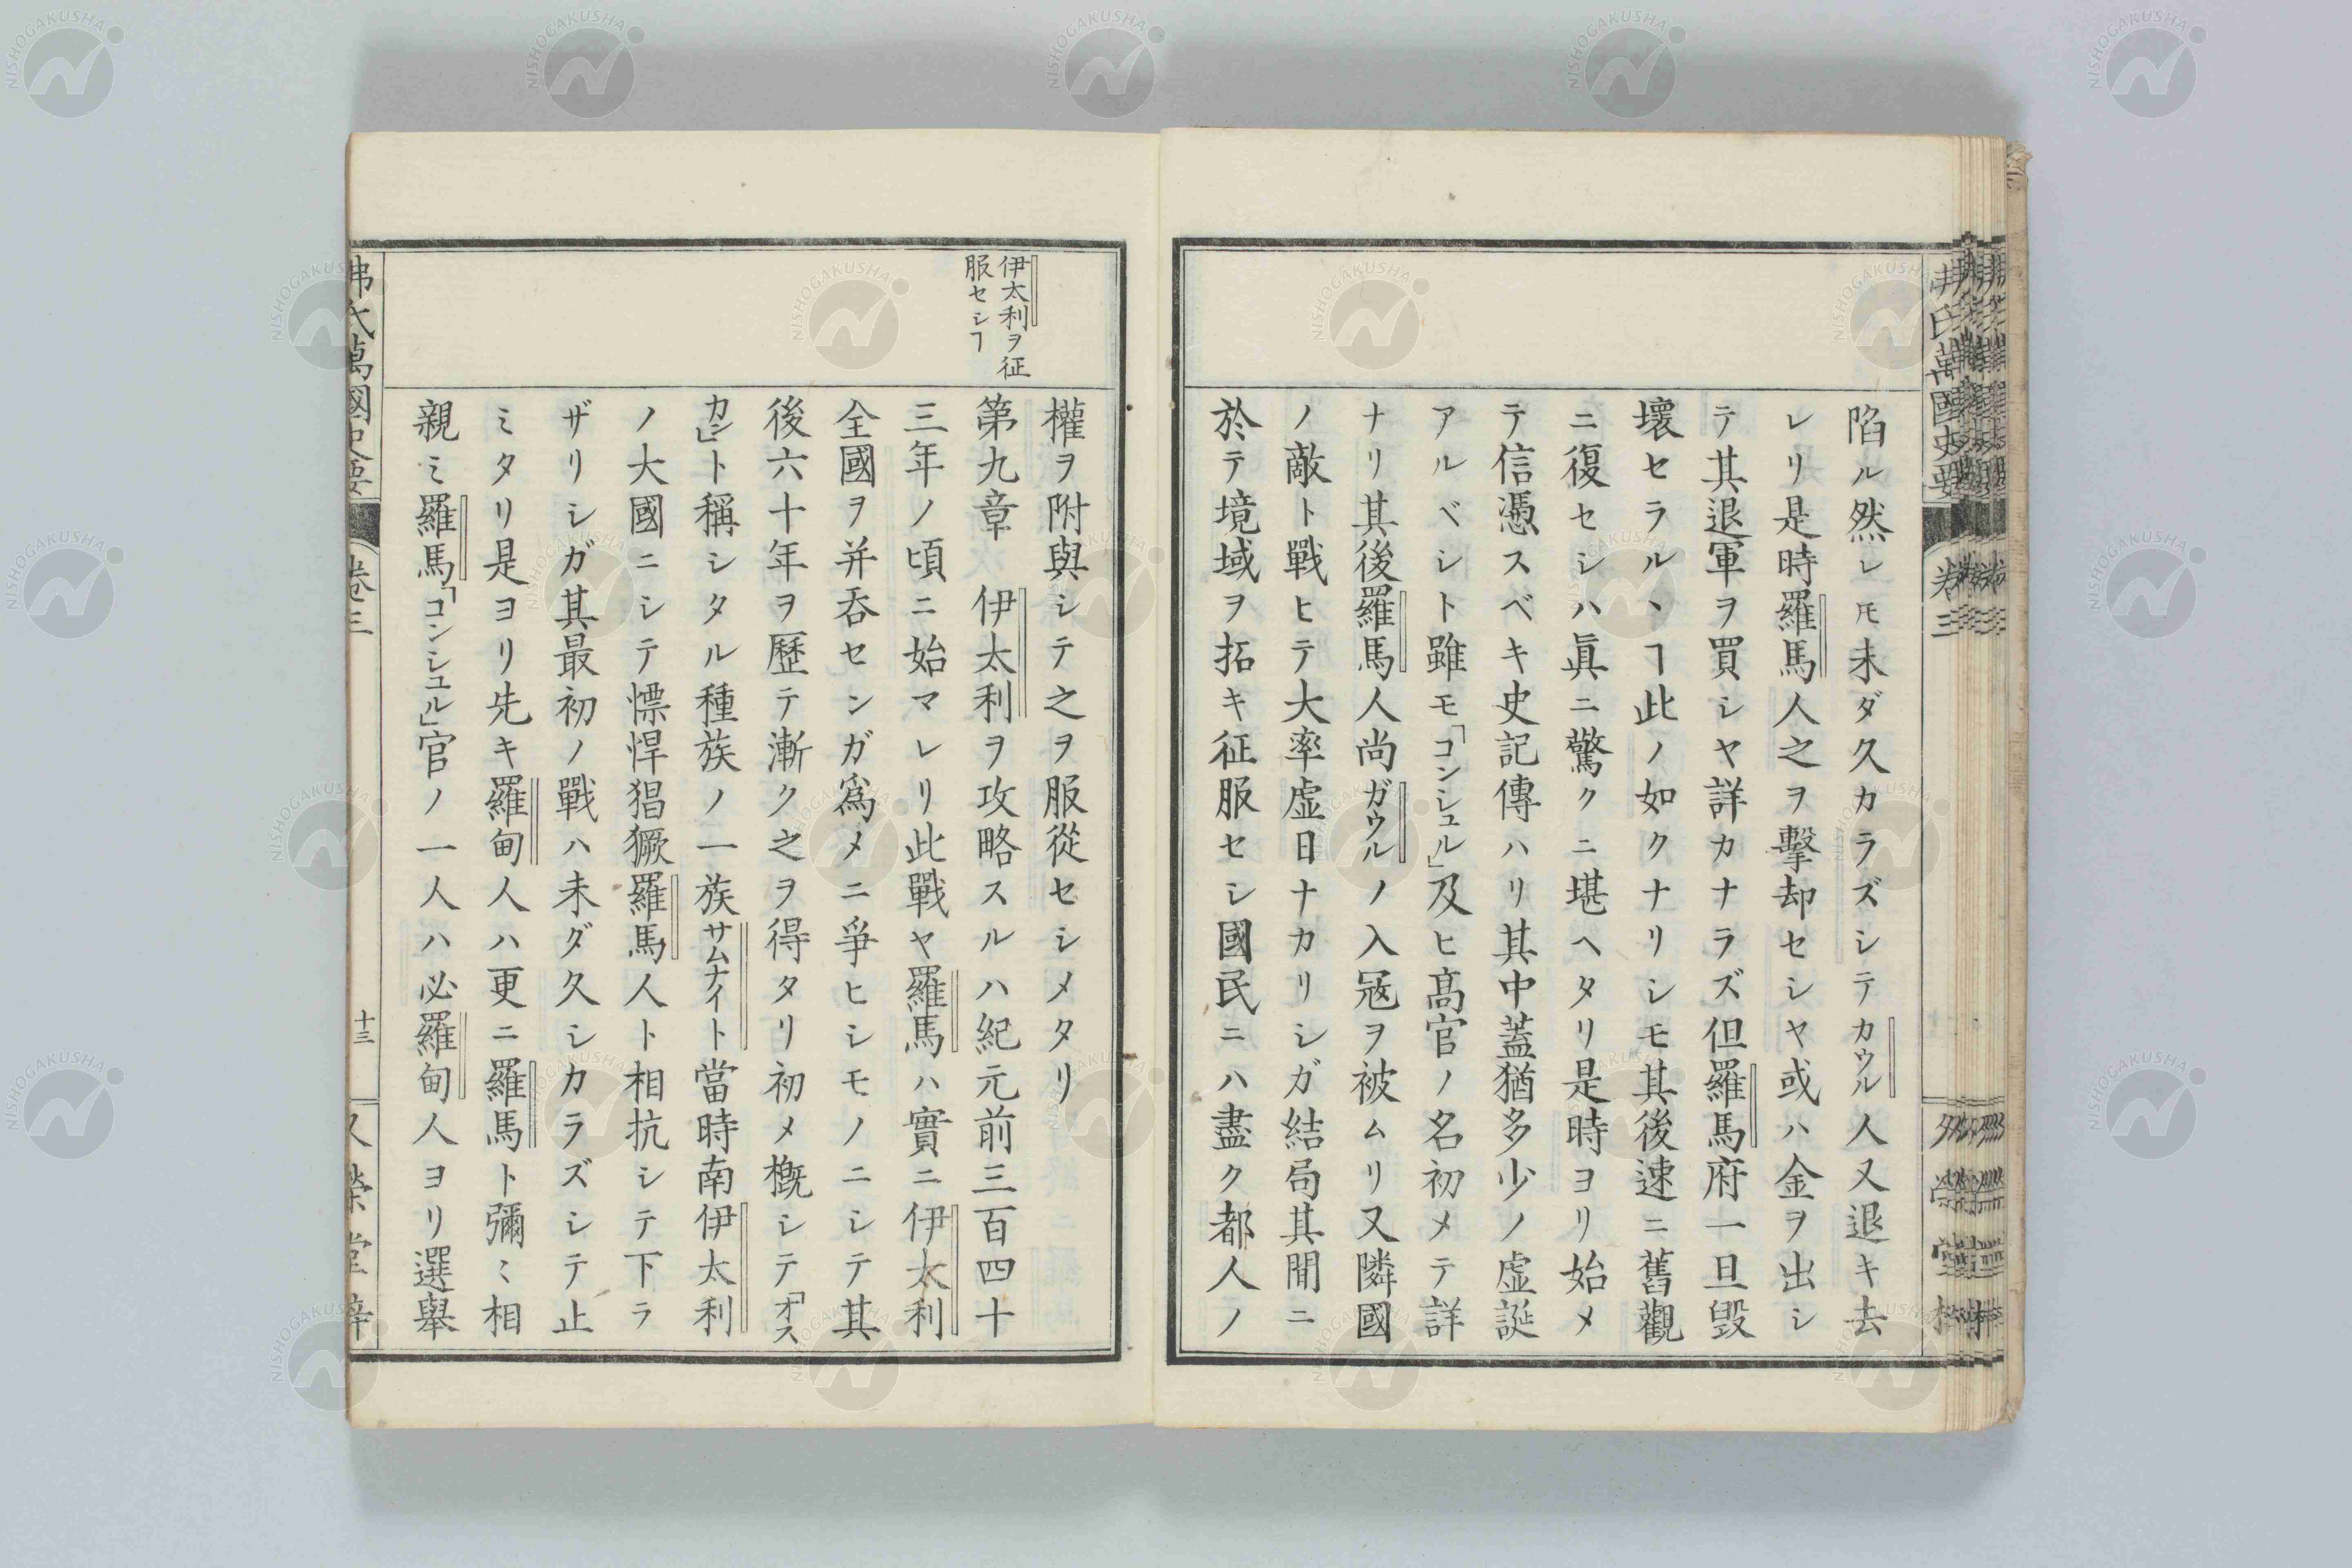 陷ル然レ𪜈未ダ久カラズシテカウル人又退キ去
レリ是時羅馬人之ヲ擊却セシヤ或ハ金ヲ出シ
テ其退軍ヲ買シヤ詳カナラズ但羅馬府一旦毀
壞セラルヽヿ此ノ如クナリシモ其後速ニ舊觀
ニ復セシハ眞ニ驚クニ堪ヘタリ是時ヨリ始メ
テ信憑スベキ史記傳ハリ其中蓋猶多少ノ虛誕
アルベシト雖モ「コンシュル」及ヒ高官ノ名初メテ詳
ナリ其後羅馬人尚ガウルノ入寇ヲ被ムリ又隣國
ノ敵ト戰ヒテ大率虛日ナカリシガ結局其間ニ
於テ境域ヲ拓キ征服セシ國民ニハ盡ク都人ノ
弗氏萬國史要
卷三
伊太利ヲ征
服セシヿ
權ヲ附與シテ之ヲ服從セシメタリ
第九章 伊太利ヲ攻略スルハ紀元前三百四十
三年ノ頃ニ始マレリ此戰ヤ羅馬ハ實ニ伊太利
全國ヲ并吞センガ爲メニ爭ヒシモノニシテ其
後六十年ヲ歷テ漸ク之ヲ得タリ初メ槪シテ「オス
カン」ト稱シタル種族ノ一族サムナイト當時南伊太利
ノ大國ニシテ慓悍猖獗羅馬人ト相抗シテ下ラ
ザリシガ其最初ノ戰ハ未ダ久シカラズシテ止
ミタリ是ヨリ先キ羅甸人ハ更ニ羅馬ト彌〻相
親ミ羅馬「コンシュル」官ノ一人ハ必羅甸人ヨリ選舉
弗氏萬國史要
卷三
十三
NISHOGAKUSHA